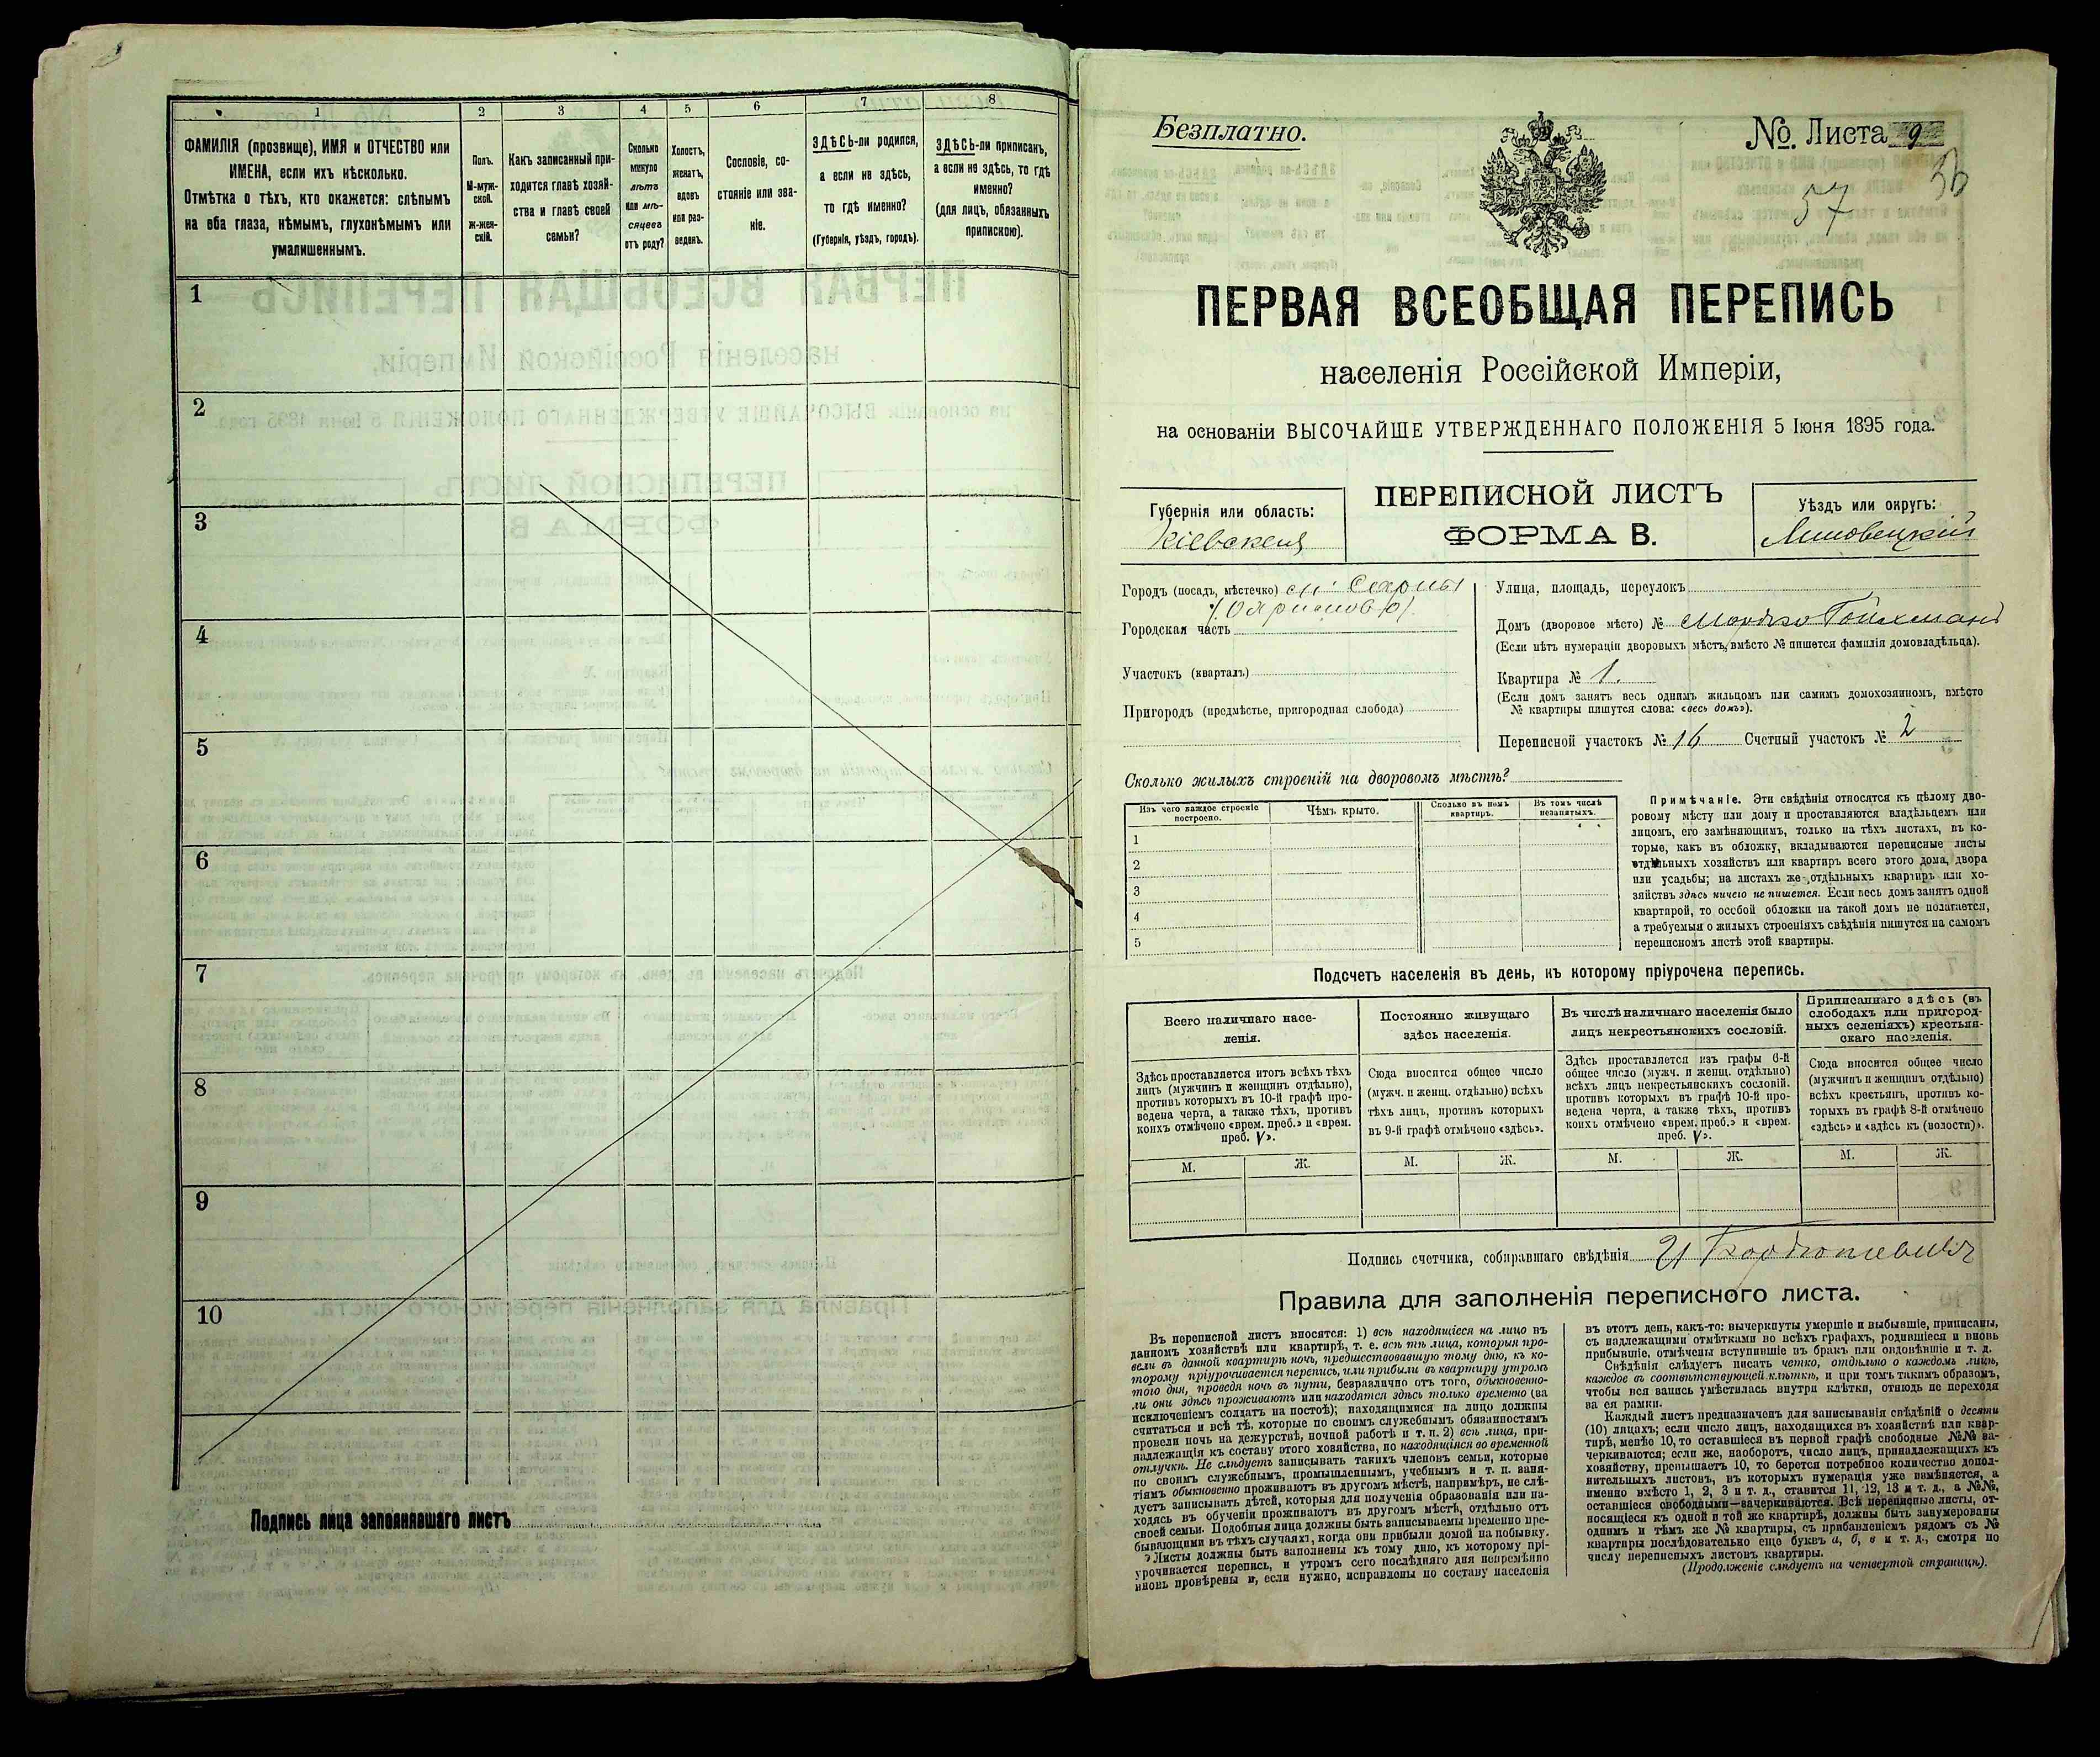 1 2 3 4 5 6 7 8
ФАМИЛІЯ (прозвище), ИМЯ и ОТЧЕСТВО или
ИМЕНА, если ихъ нѣсколько.
Отмѣтка о тѣхъ, кто окажется: слѣпымъ
на оба глаза, нѣмымъ, глухонѣмымъ или
умалишеннымъ.
Полъ.
М-муж-
ской.
Ж-жен-
скій.
Какъ записанный при-
ходится главѣ хозяй-
ства и главѣ своей
семьи?
Сколько
минуло
лѣтъ
или мѣ-
сяцевъ
отъ роду?
Холостъ,
женатъ,
вдовъ
или раз-
веденъ.
Сословіе, со-
стояніе или зва-
ніе.
ЗДѢСЬ-ли родился,
а если не здѣсь,
то гдѣ именно?
(Губернія, уѣздъ, городъ).
ЗДѢСЬ-ли приписанъ,
а если не здѣсь, то гдѣ
именно?
(для лицъ, обязанныхъ
припискою).
1
2
3
4
5
6
7
8
9
10
Подпись лица заполнявшаго листъ
Безплатно.
№. Листа 9
37
36
ПЕРВАЯ ВСЕОБЩАЯ ПЕРЕПИСЬ
населенія Россійской Имперіи,
на основаніи ВЫСОЧАЙШЕ УТВЕРЖДЕННАГО ПОЛОЖЕНІЯ 5 Іюня 1895 года.
Губернія или область:
Кіевская
ПЕРЕПИСНОЙ ЛИСТЪ
ФОРМА В.
Уѣздъ или округъ:
Липовецкій
Городъ (посадъ, мѣстечко)
Городская часть
Участокъ (кварталъ)
Пригородъ (предмѣстье, пригородная слобода)
Улица, площадь, переулокъ
Домъ (дворовое мѣсто) № Мордко
(Если нѣтъ нумераціи дворовыхъ мѣстъ, вмѣсто № пишется фамилія домовладѣльца).
Квартира № 1.
(Если домъ занятъ весь однимъ жильцомъ или самимъ домохозяиномъ, вмѣсто
№ квартиры пишутся слова: «весь домъ»).
Переписной участокъ № 16 Счетный участокъ № 2
Сколько жилыхъ строеній на дворовомъ мѣстѣ?
Изъ чего каждое строеніе
построено.
Чѣмъ крыто.
Сколько въ немъ
квартиръ.
Въ томъ числѣ
незанятыхъ.
1
2
3
4
5
Примѣчаніе. Эти свѣдѣнія относятся къ цѣлому дво-
ровому мѣсту или дому и проставляются владѣльцемъ или
лицомъ, его замѣняющимъ, только на тѣхъ листахъ, въ ко-
торые, какъ въ обложку, вкладываются переписные листы
отдѣльныхъ хозяйствъ или квартиръ всего этого дома, двора
или усадьбы; на листахъ же отдѣльныхъ квартиръ или хо-
зяйствъ здѣсь ничего не пишется. Если весь домъ занятъ одной
квартирой, то особой обложки на такой домъ не полагается,
а требуемыя о жилыхъ строеніяхъ свѣдѣнія пишутся на самомъ
переписномъ листѣ этой квартиры.
Подсчетъ населенія въ день, къ которому пріурочена перепись.
Всего наличнаго насе-
ленія.
Здѣсь проставляется итогъ всѣхъ тѣхъ
лицъ (мужчинъ и женщинъ отдѣльно),
противъ которыхъ въ 10-й графѣ про-
ведена черта, а также тѣхъ, противъ
коихъ отмѣчено «врем. преб.» и «врем.
преб. V».
Постоянно живущаго
здѣсь населенія.
Сюда вносится общее число
(мужч. и женщ. отдѣльно) всѣхъ
тѣхъ лицъ, противъ которыхъ
въ 9-й графѣ отмѣчено «здѣсь».
Въ числѣ наличнаго населенія было
лицъ некрестьянскихъ сословій.
Здѣсь проставляется изъ графы 6-й
общее число (мужч. и женщ. отдѣльно)
всѣхъ лицъ некрестьянскихъ сословій.
противъ которыхъ въ графѣ 10-й про-
ведена черта, а также тѣхъ, противъ
коихъ отмѣчено «врем. преб.» и «врем.
преб. V».
Приписаннаго здѣсь (въ
слободахъ или пригород-
ныхъ селеніяхъ) крестьян-
скаго населенія.
Сюда вносится общее число
(мужчинъ и женщинъ отдѣльно)
всѣхъ крестьянъ, противъ ко-
торыхъ въ графѣ 8-й отмѣчено
«здѣсь» и «здѣсь къ (волости)».
М. Ж. М. Ж. М. Ж. М. Ж.
Подпись счетчика, собиравшаго свѣдѣнія
Правила для заполненія переписного листа.
Въ переписной листъ вносятся: 1) всѣ находящіеся на лицо въ
данномъ хозяйствѣ или квартирѣ, т. е. всѣ тѣ лица, которыя про-
вели въ данной квартирѣ ночь, предшествовавшую тому дню, къ ко-
торому пріурочивается перепись, или прибыли въ квартиру утромъ
того дня, проведя ночь въ пути, безразлично отъ того, обыкновенно-
ли они здѣсь проживаютъ или находятся здѣсь только временно (за
исключеніемъ солдатъ на постоѣ); находящимися на лицо должны
считаться и всѣ тѣ. которые по своимъ служебнымъ обязанностямъ
провели ночь на дежурствѣ, ночной работѣ и т. п. 2) всѣ лица, при-
надлежащія къ составу этого хозяйства, но находящіяся во временной
отлучкѣ. Не слѣдуетъ записывать такихъ членовъ семьи, которые
по своимъ служебнымъ, промышленнымъ, учебнымъ и т. п. заня-
тіямъ обыкновенно проживаютъ въ другомъ мѣстѣ, напримѣръ, не слѣ-
дуетъ записывать дѣтей, которыя для полученія образованія или на-
ходясь въ обученіи проживаютъ въ другомъ мѣстѣ, отдѣльно отъ
своей семьи. Подобныя лица должны быть записываемы временно пре-
бывающими въ тѣхъ случаяхъ, когда они прибыли домой на побывку.
Листы должны быть заполнены къ тому дню, къ которому прі-
урочивается перепись, и утромъ сего послѣдняго дня непремѣнно
вновь провѣрены и, если нужно, исправлены по составу населенія
въ этотъ день, какъ-то: вычеркнуты умершіе и выбывшіе, приписаны,
съ надлежащими отмѣтками во всѣхъ графахъ, родившіеся и вновь
прибывшіе, отмѣчены вступившіе въ бракъ или овдовѣвшіе и т. д.
Свѣдѣнія слѣдуетъ писать четко, отдѣльно о каждомъ лицѣ,
каждое въ соотвѣтствующей клѣткѣ, и при томъ такимъ образомъ,
чтобы вся запись умѣстилась внутри клѣтки, отнюдь не переходя
за ея рамки.
Каждый листъ предназначенъ для записыванія свѣдѣній о десяти
(10) лицахъ; если число лицъ, находящихся въ хозяйствѣ или квар-
тирѣ, менѣе 10, то оставшіеся въ первой графѣ свободные №№ за-
черкиваются; если же, наоборотъ, число лицъ, принадлежащихъ къ
хозяйству, превышаетъ 10, то берется потребное количество допол-
нительныхъ листовъ, въ которыхъ нумерація уже измѣняется, а
именно вмѣсто 1, 2, 3 и т. д., ставится 11, 12, 13 и т. д., а №№,
оставшіеся свободными—зачеркиваются. Всѣ переписные листы, от-
носящіеся къ одной и той же квартирѣ, должны быть занумерованы
однимъ и тѣмъ же № квартиры, съ прибавленіемъ рядомъ съ №
квартиры послѣдовательно еще буквъ а, б, в и т. д., смотря по
числу переписныхъ листовъ квартиры.
(Продолженіе слѣдуетъ на четвертой страницѣ).